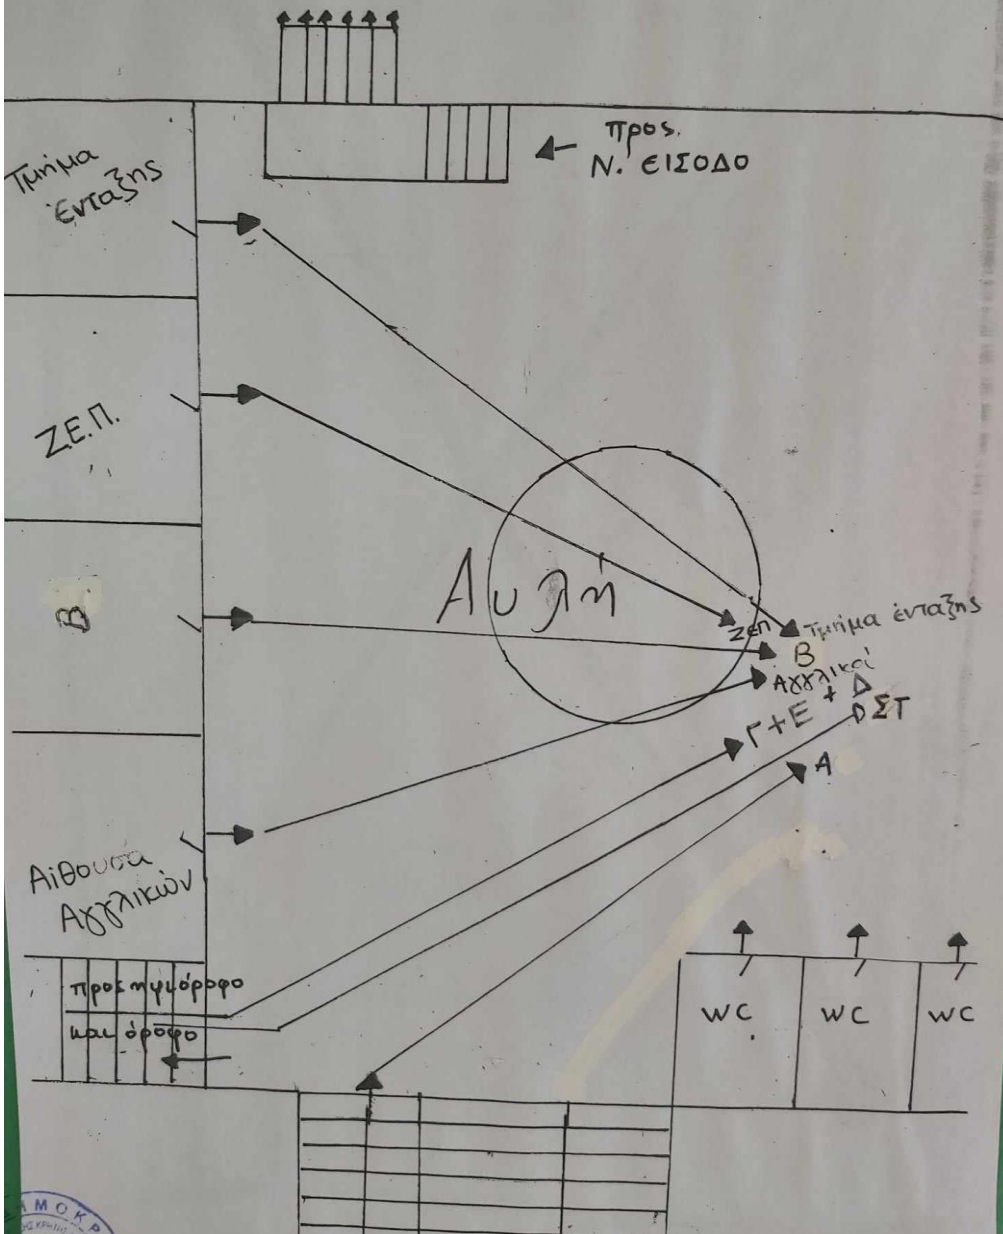 προς.
Ν. ΕΙΣΟΔΟ
Τμήμα
ένταξης
Ζ.Ε.Π.
Β
Αυλή
ΖΕΠ
Τμήμα ένταξης
Β
Αγγλικά
Γ+Ε + Δ
ΣΤ
Α
Αίθουσα
Αγγλικών
προς ημιόροφο
και όροφο
WC
WC
WC
ΗΜΟΚΡ